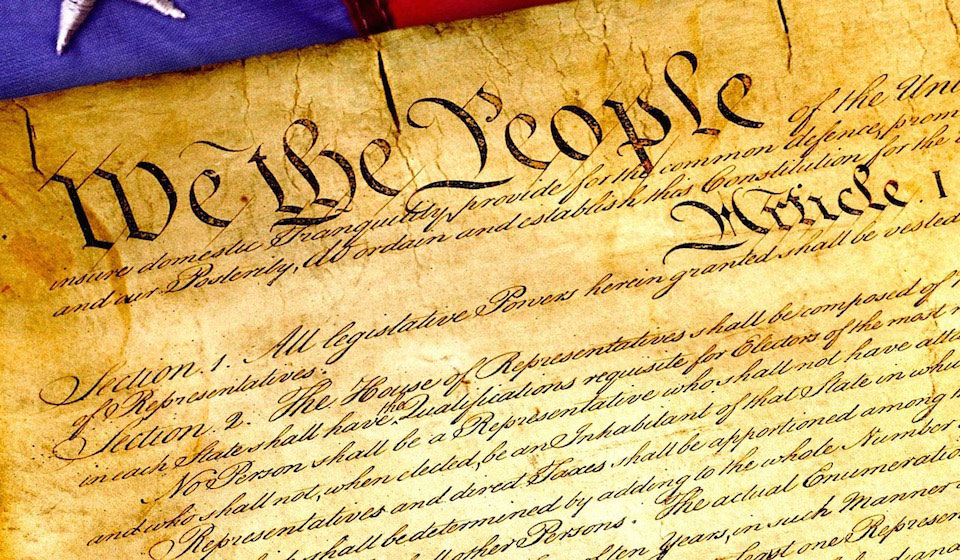 We the People
of the Uni
insure domestic Tranquility, provide for the common defence, prom
and our Posterity, do ordain and establish this Constitution for the
Article I
Section 1. All legislative Powers herein granted shall be vested
of Representatives.
Section 2. The House of Representatives shall be composed of
in each State shall have the Qualifications requisite for Electors of the most
No Person shall be a Representative who shall not have atta
and who shall not, when elected, be an Inhabitant of that State in whic
Representatives and direct Taxes shall be apportioned among
shall be determined by adding to the whole Number
all other Persons. The actual Enumeratio
of ten Years, in such Manner
least one Represen